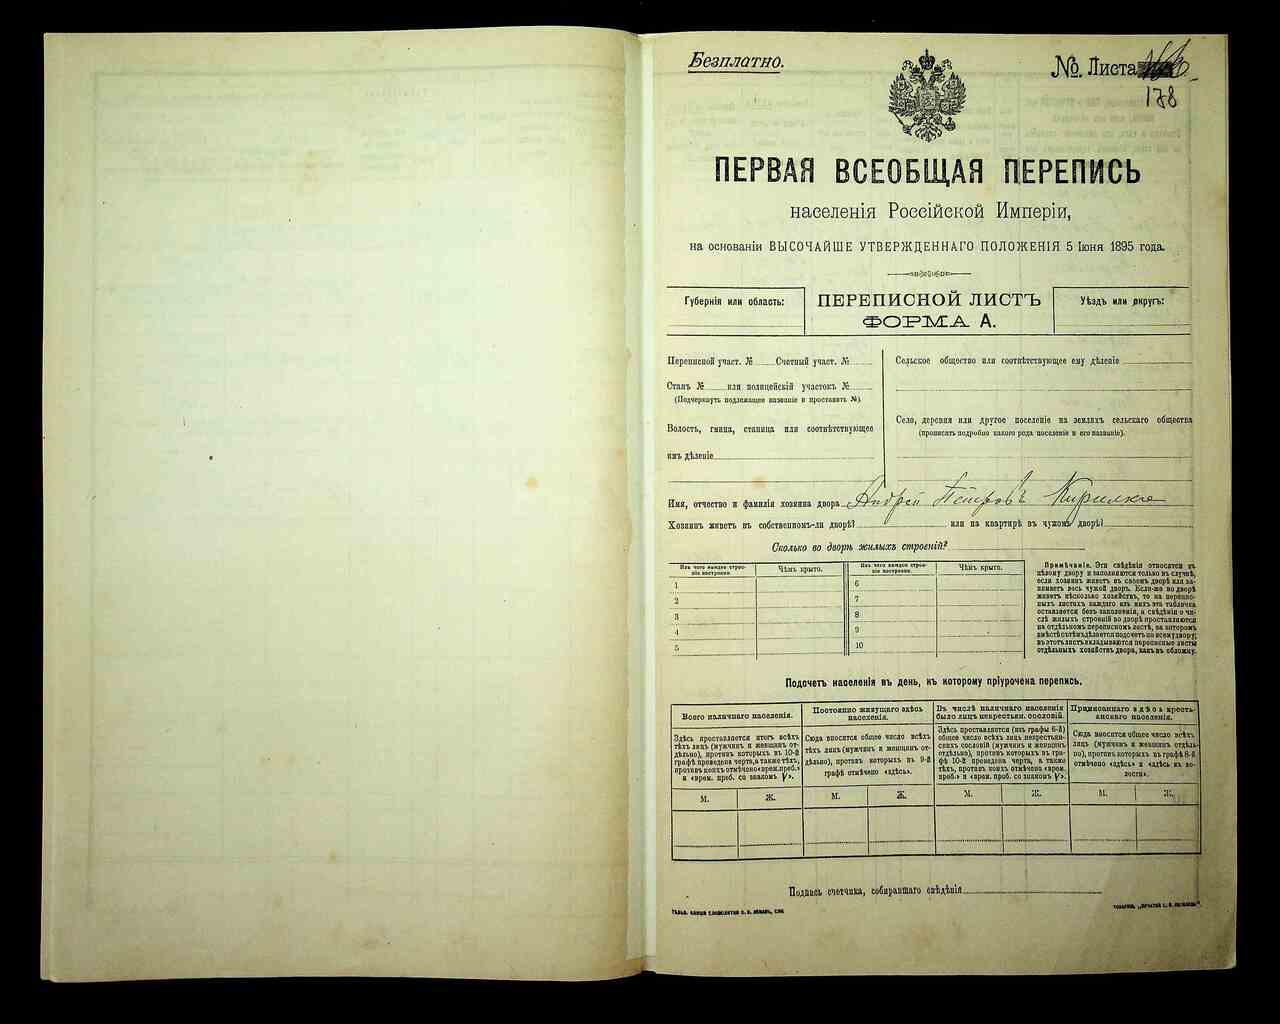 Безплатно.
№ Листа
178
ПЕРВАЯ ВСЕОБЩАЯ ПЕРЕПИСЬ
населенія Россійской Имперіи,
на основаніи ВЫСОЧАЙШЕ УТВЕРЖДЕННАГО ПОЛОЖЕНІЯ 5 Іюня 1895 года.
Губернія или область:
ПЕРЕПИСНОЙ ЛИСТЪ
ФОРМА А.
Уѣздъ или округъ:
Переписной участ. № Счетный участ. №
Станъ № или полицейскій участокъ №
(Подчеркнуть подлежащее названіе и проставить №).
Волость, гмина, станица или соотвѣтствующее
имъ дѣленіе
Сельское общество или соотвѣтствующее ему дѣленіе
Село, деревня или другое поселеніе на земляхъ сельскаго общества
(прописать подробно какого рода поселеніе и его названіе).
Имя, отчество и фамилія хозяина двора Андрей Петровъ
Хозяинъ живетъ въ собственномъ-ли дворѣ? или на квартирѣ въ чужомъ дворѣ?
Сколько во дворѣ жилыхъ строеній?
Изъ чего каждое строе-
ніе построено.
Чѣмъ крыто.
Изъ чего каждое строе-
ніе построено.
Чѣмъ крыто.
1
2
3
4
5
6
7
8
9
10
Примѣчаніе. Эти свѣдѣнія относятся къ
цѣлому двору и заполняются только въ случаѣ,
если хозяинъ живетъ въ своемъ дворѣ или за-
нимаетъ весь чужой дворъ. Если-же во дворѣ
живетъ нѣсколько хозяйствъ, то на перепис-
ныхъ листахъ каждаго изъ нихъ эта табличка
оставляется безъ заполненія, а свѣдѣнія о чи-
слѣ жилыхъ строеній во дворѣ проставляются
на отдѣльномъ переписномъ листѣ, на которомъ
вмѣстѣ съ тѣмъ дѣлается подсчетъ по всему двору;
въ этотъ листъ вкладываются переписные листы
отдѣльныхъ хозяйствъ двора, какъ въ обложку.
Подсчетъ населенія въ день, къ которому пріурочена перепись.
Всего наличнаго населенія.
Здѣсь проставляется итогъ всѣхъ
тѣхъ лицъ (мужчинъ и женщинъ от-
дѣльно), противъ которыхъ въ 10-й
графѣ проведена черта, а также тѣхъ,
противъ коихъ отмѣчено «врем. преб.»
и «врем. преб. со знакомъ V».
Постоянно живущаго здѣсь
населенія.
Сюда вносится общее число всѣхъ
тѣхъ лицъ (мужчинъ и женщинъ от-
дѣльно), противъ которыхъ въ 9-й
графѣ отмѣчено «здѣсь».
Въ числѣ наличнаго населенія
было лицъ некрестьян. сословій.
Здѣсь проставляется (изъ графы 6-й)
общее число всѣхъ лицъ некрестьян-
скихъ сословій (мужчинъ и женщинъ,
отдѣльно), противъ которыхъ въ гра-
фѣ 10-й проведена черта, а также
тѣхъ, противъ коихъ отмѣчено «врем.
преб.» и «врем. преб. со знакомъ V».
Приписаннаго здѣсь кресть-
янскаго населенія.
Сюда вносится общее число всѣхъ
лицъ (мужчинъ и женщинъ отдѣль-
но), противъ которыхъ въ графѣ 8-й
отмѣчено «здѣсь» и «здѣсь къ во-
лости».
М. Ж. М. Ж. М. Ж. М. Ж.
Подпись счетчика, собиравшаго свѣдѣнія